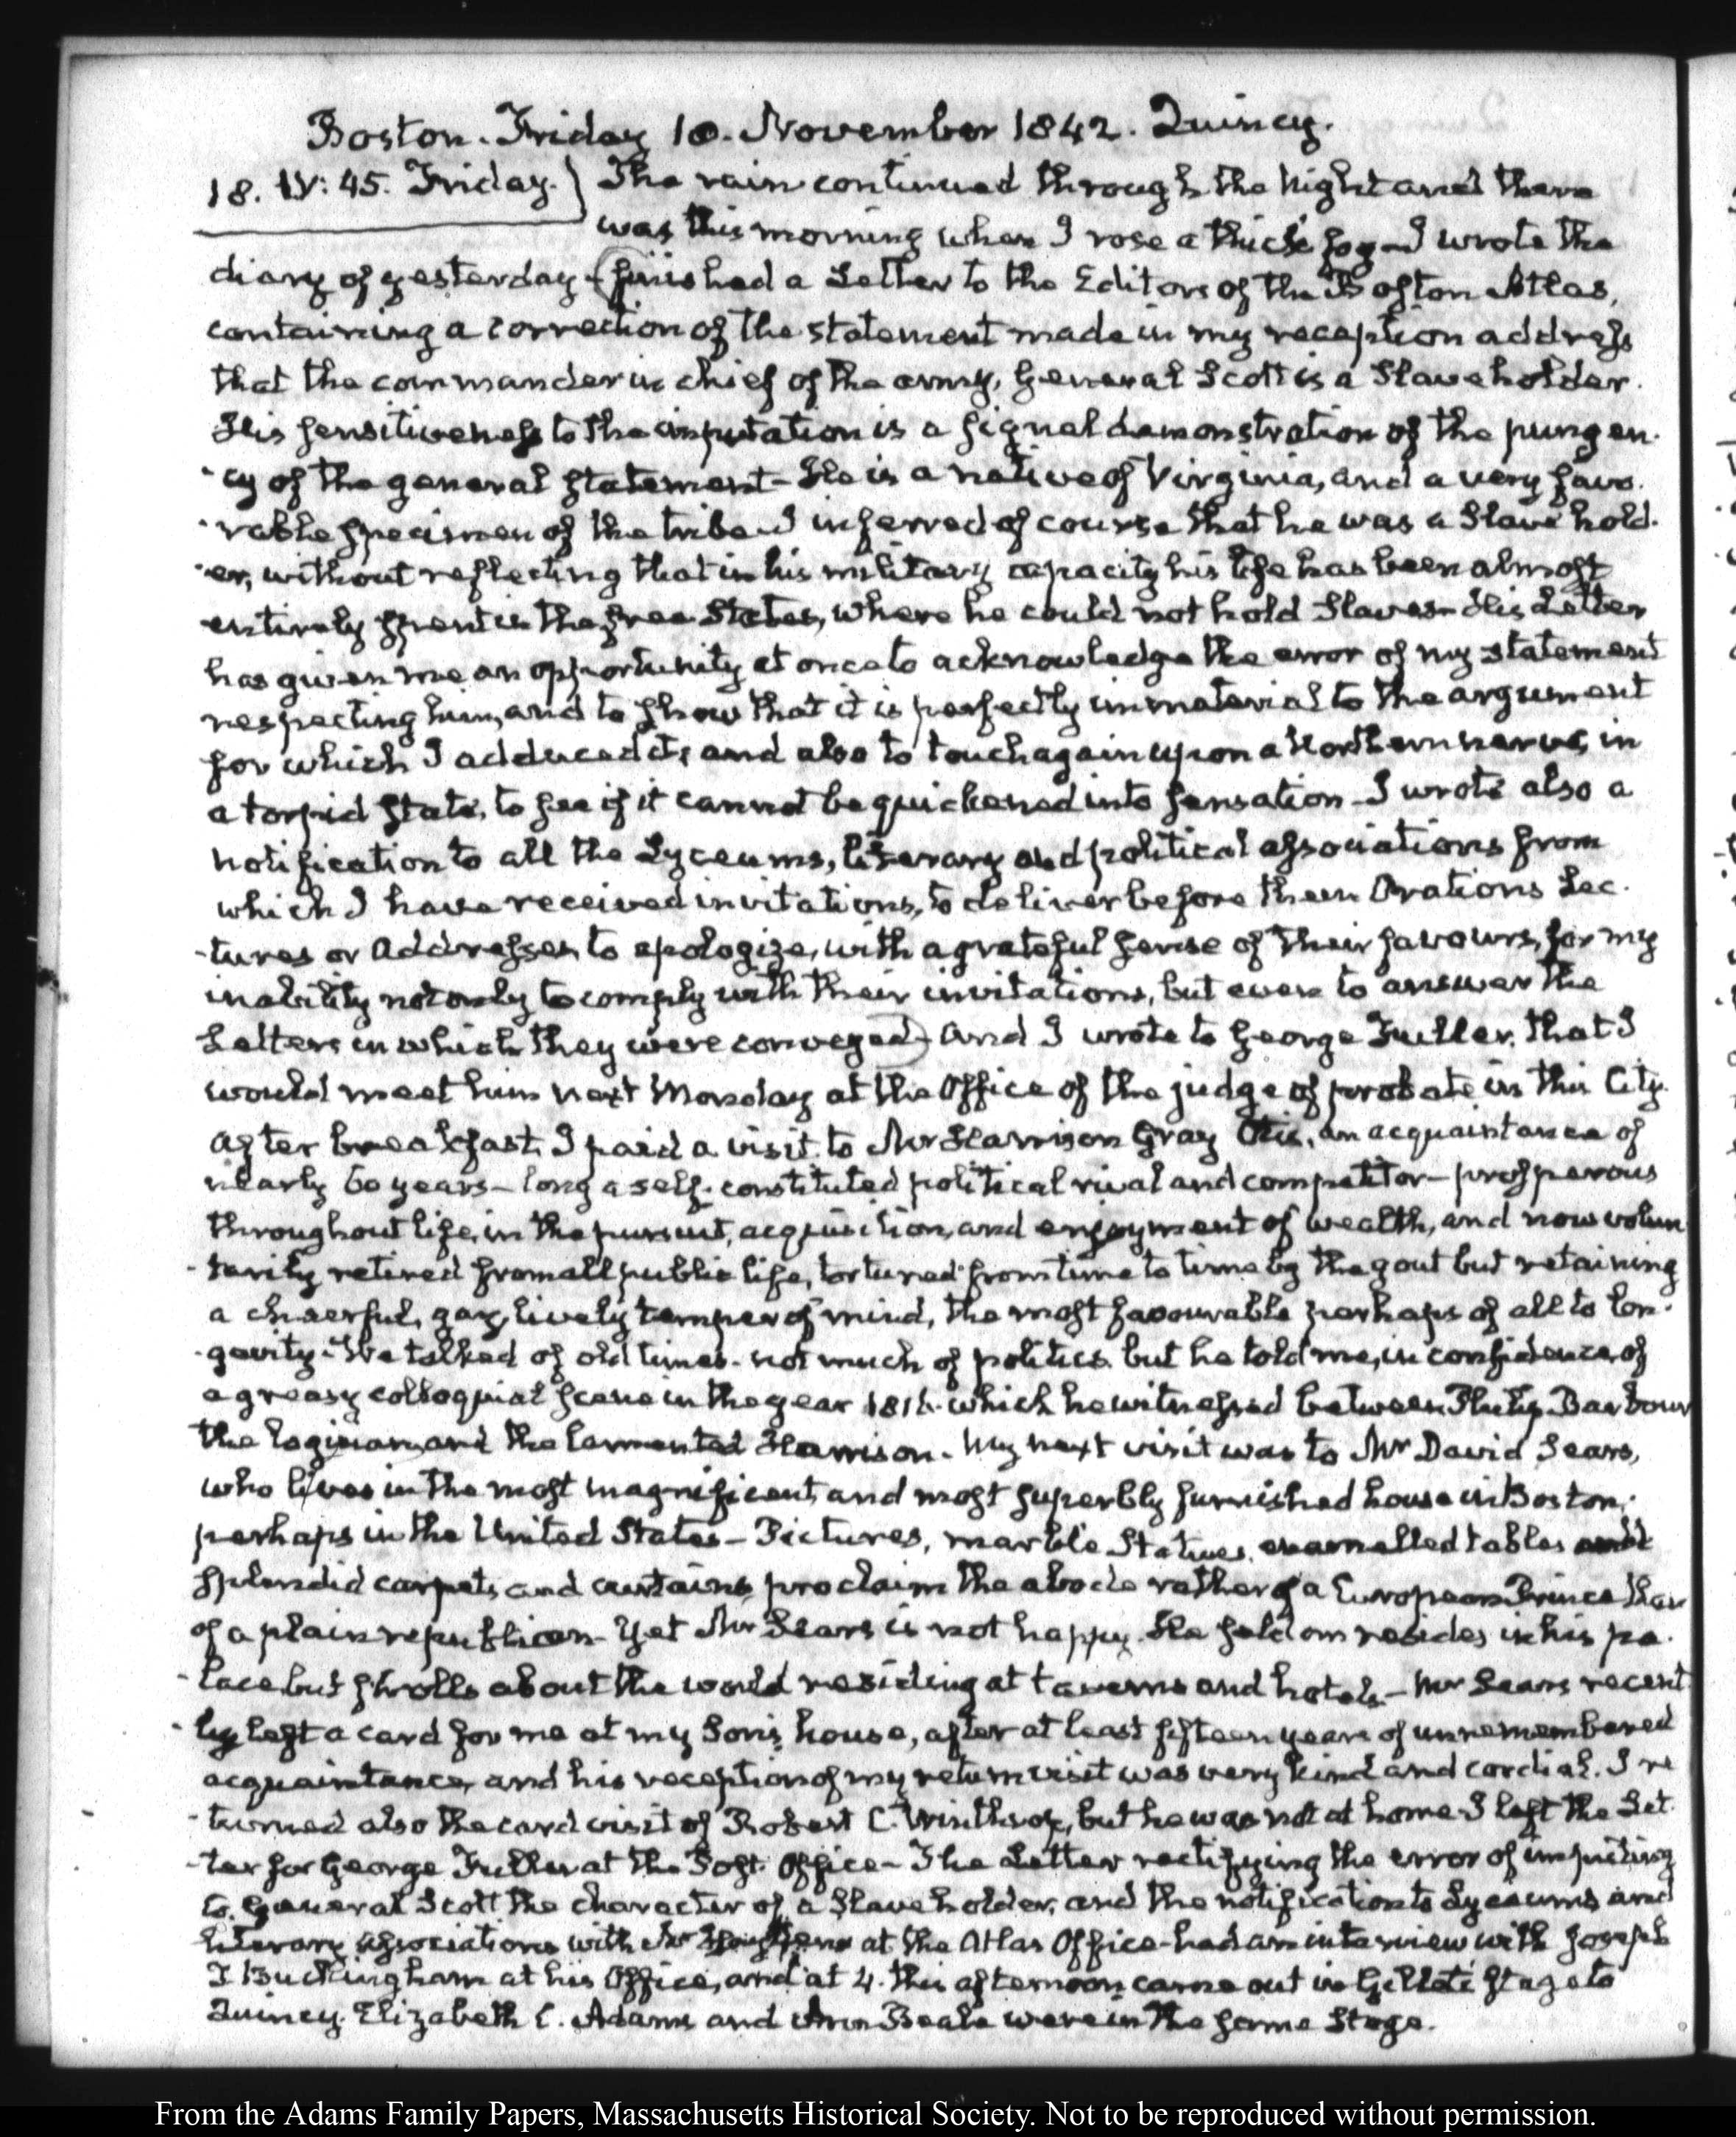 Boston. Friday 18. November 1842. Quincy.
18. IV: 45. Friday. The rain continued through the night and there
was this morning when I rose a thick fog—I wrote the
diary of yesterday—finished a Letter to the Editors of the Boston Atlas,
containing a correction of the statement made in my reception address
that the commander in chief of the army, General Scott is a Slave holder.
His sensitiveness to the imputation is a signal demonstration of the pungen-
-cy of the general statement—He is a native of Virginia, and a very favo-
-rable specimen of the tribe—I inferred of course that he was a Slave hold-
-er, without reflecting that in his military capacity his life has been almost
entirely spent in the free States, where he could not hold Slaves—His Letter
has given me an opportunity at once to acknowledge the error of my statement
respecting him, and to show that it is perfectly immaterial to the argument
for which I adduced it, and also to touch again upon a Northern nerve, in
a torpid state, to see if it cannot be quickened into sensation—I wrote also a
notification to all the Lyceums, literary and political associations from
which I have received invitations, to deliver before them Orations Lec-
-tures or Addresses, to apologize, with a grateful sense of their favours, for my
inability not only to comply with their invitations, but even to answer the
Letters in which they were conveyed—and I wrote to George Fuller, that I
would meet him next Monday at the Office of the judge of probate in this City.
After breakfast, I paid a visit to Mr Harrison Gray Otis, an acquaintance of
nearly 60 years—long a self-constituted political rival and competitor—prosperous
throughout life, in the pursuit, acquisition, and enjoyment of wealth, and now volun
-tarily retired from all public life, tortured from time to time by the gout but retaining
a cheerful, gay, lively temper of mind, the most favourable perhaps of all to lon-
-gevity—We talked of old times—not much of politics. but he told me, in confidence, of
a greasy colloquial scene in the year 1816. which he witnessed between Philip Barbour
the logician, and the lamented Harrison—My next visit was to Mr David Sears,
who lives in the most magnificent, and most superbly furnished house in Boston;
perhaps in the United States—Pictures, marble Statues, enamelled tables and
splendid carpets, and curtains proclaim the abode rather of a European Prince than
of a plain republican—Yet Mr Sears is not happy. He seldom resides in his pa-
-lace, but strolls about the world residing at taverns and hotels—Mr Sears recent
-ly left a card for me at my Son's house, after at least fifteen years of unremembered
acquaintance, and his reception of my return visit was very kind and cordial. I re
-turned also the card visit of Robert C. Winthrop, but he was not at home. I left the Let-
-ter for George Fuller at the Post-Office—The Letter rectifying the error of imputing
to General Scott the character of a Slave holder, and the notification to Lyceums and
literary associations with Mr at the Atlas Office—had an interview with Joseph
T Buckingham at his Office, and at 4. this afternoon came out in Gillett's stage to
Quincy. Elizabeth C. Adams and Ann Beale were in the same Stage.
From the Adams Family Papers, Massachusetts Historical Society. Not to be reproduced without permission.